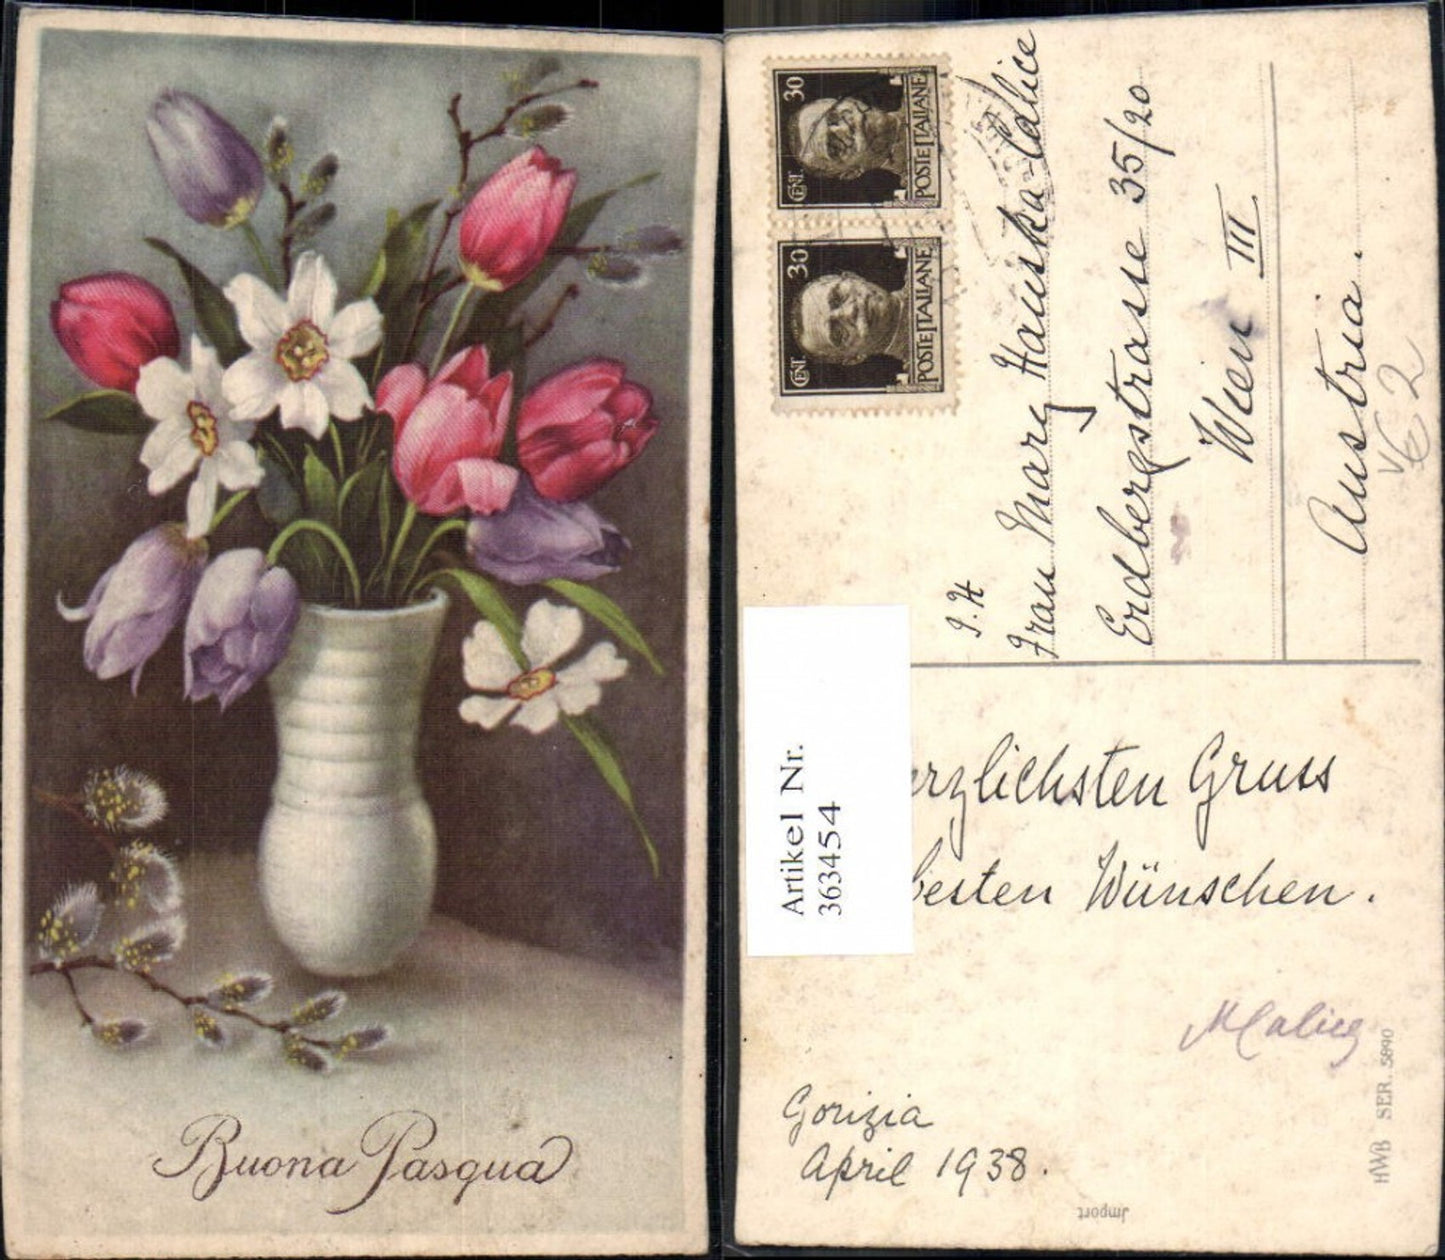 Buona Pasqua
30
CENT.
POSTE ITALIANE
30
CENT.
POSTE ITALIANE
Frau Mary Hauska-Calice
Erdbergstrasse 35/20
Wien III
Austria.
Artikel Nr.
363454
rzlichsten Gruss
besten Wünschen.
MCalice
Gorizia
April 1938.
HWB SER. 5890
Jmport